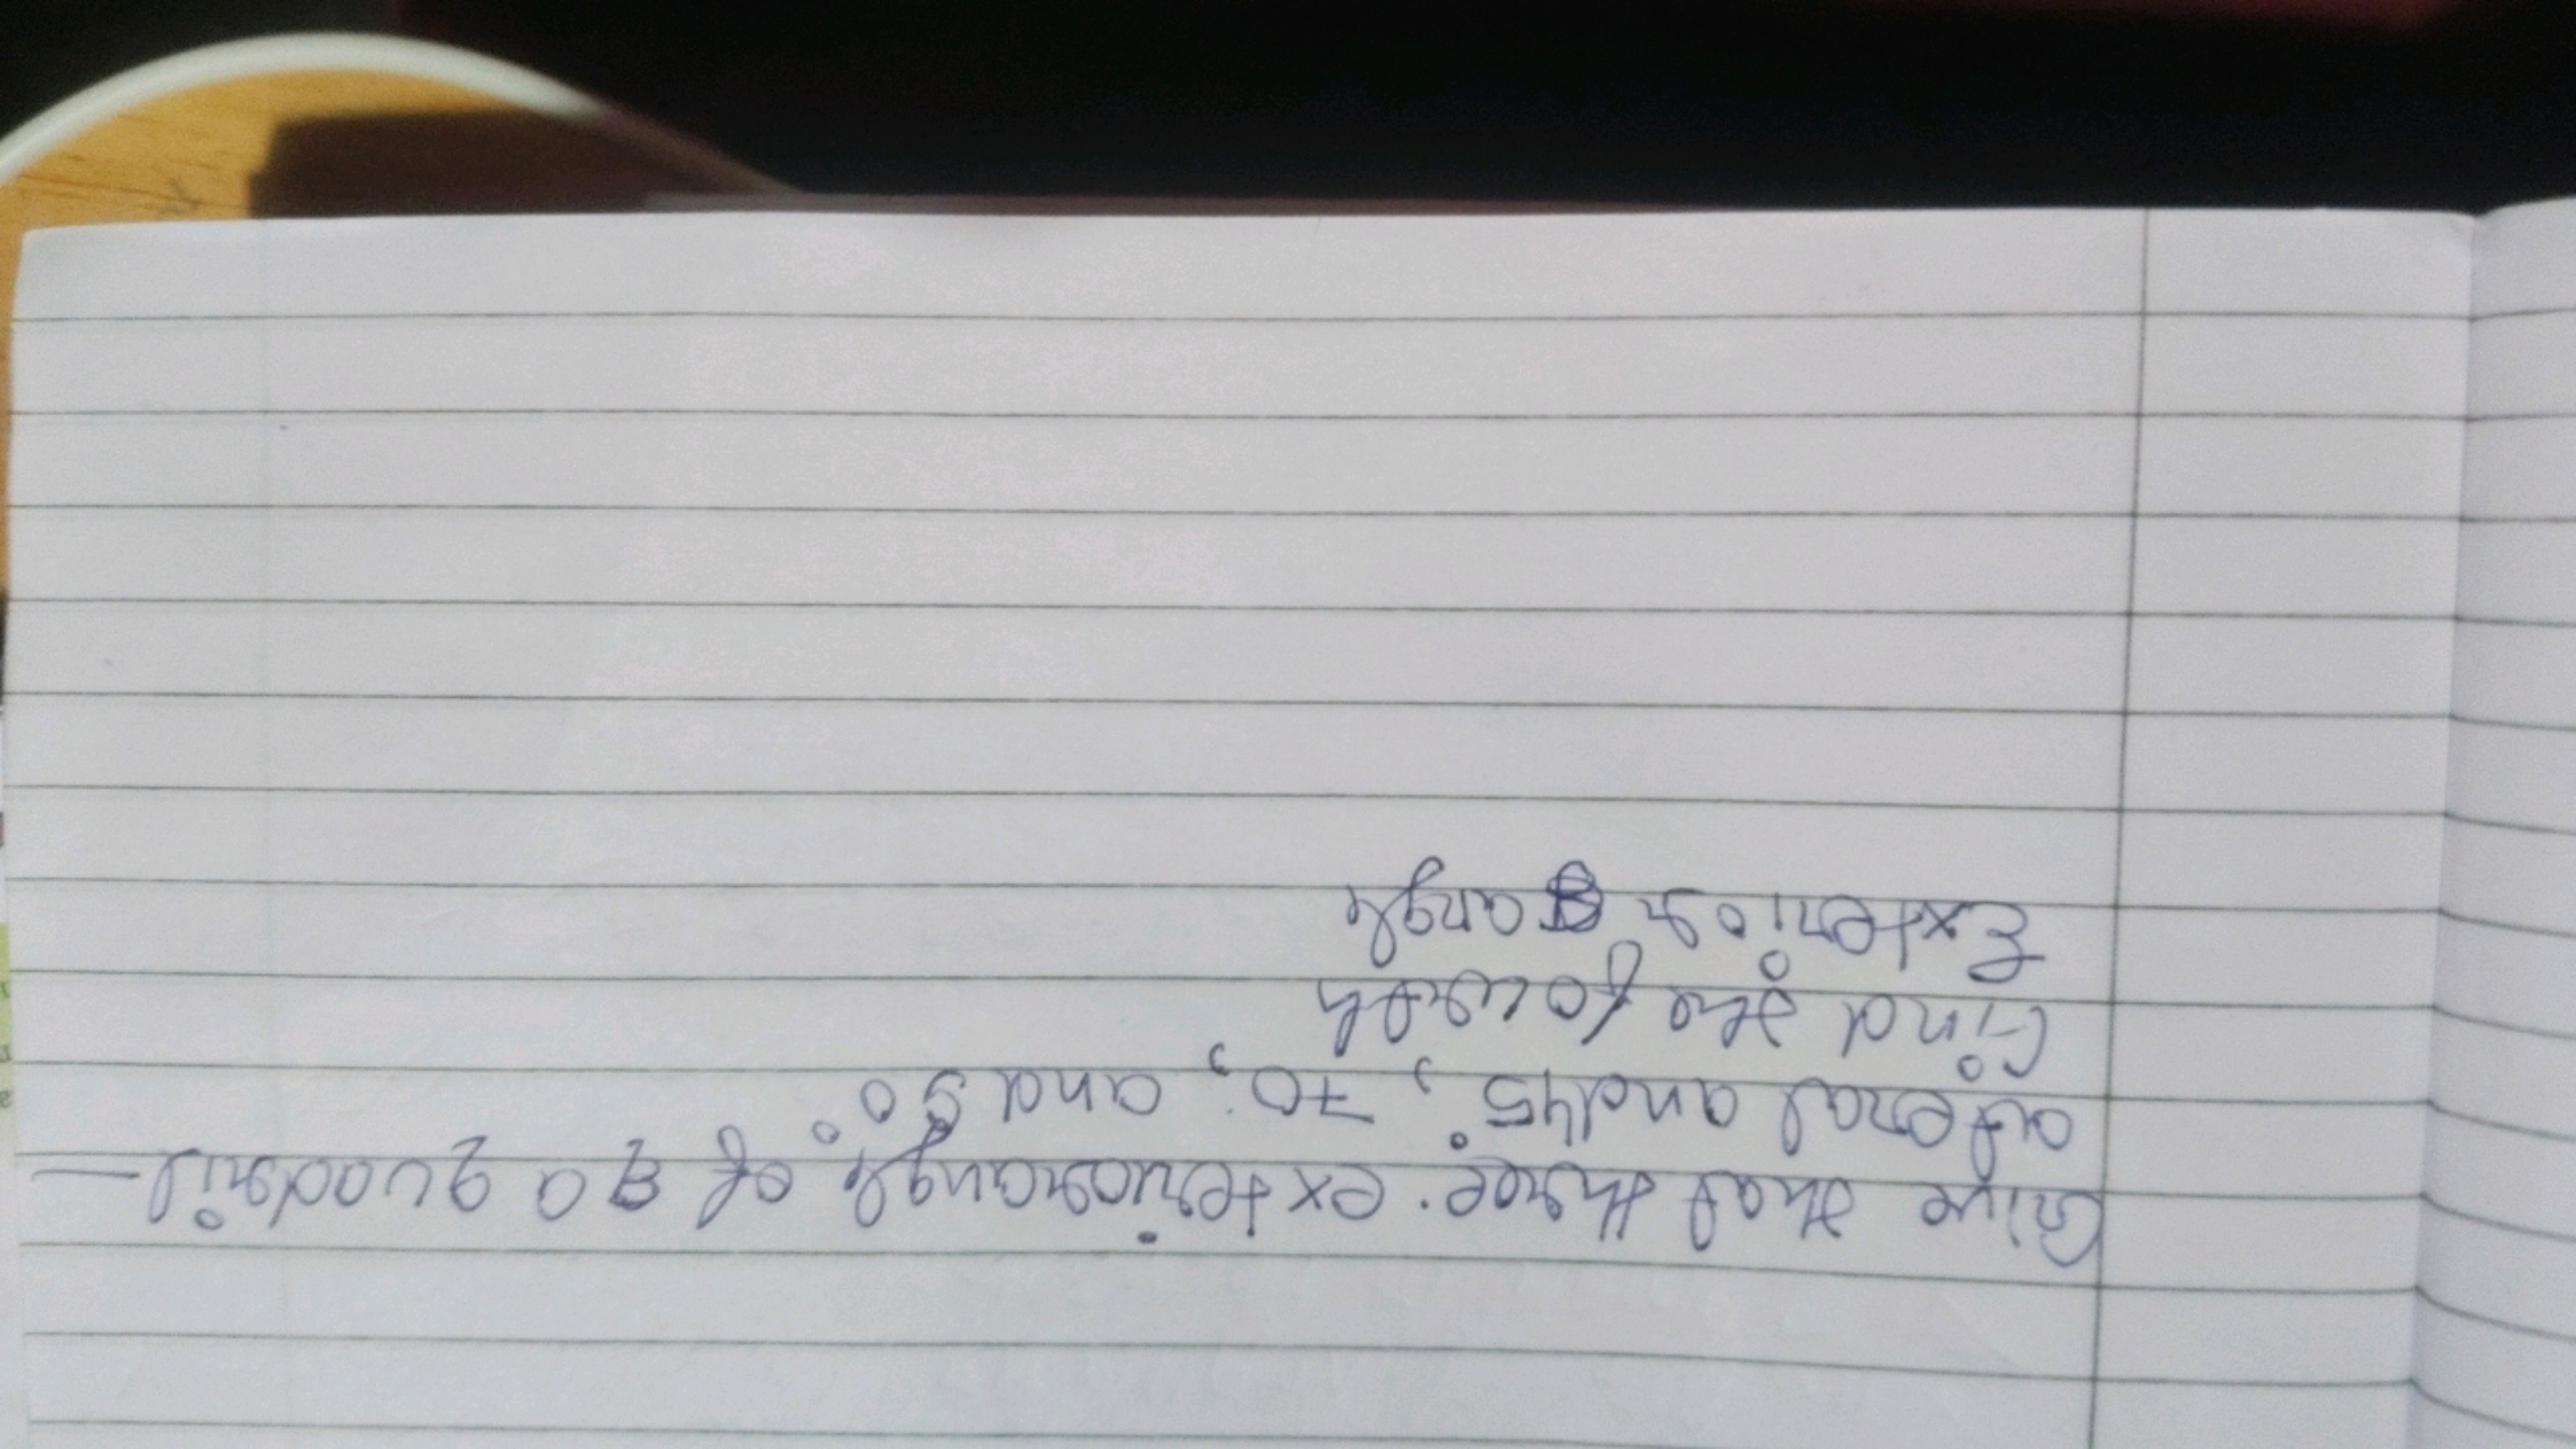 Give that three exteriorangle of a quadril-
ateral and 45°, 70, and 90°
find the fourth
Exterior angle